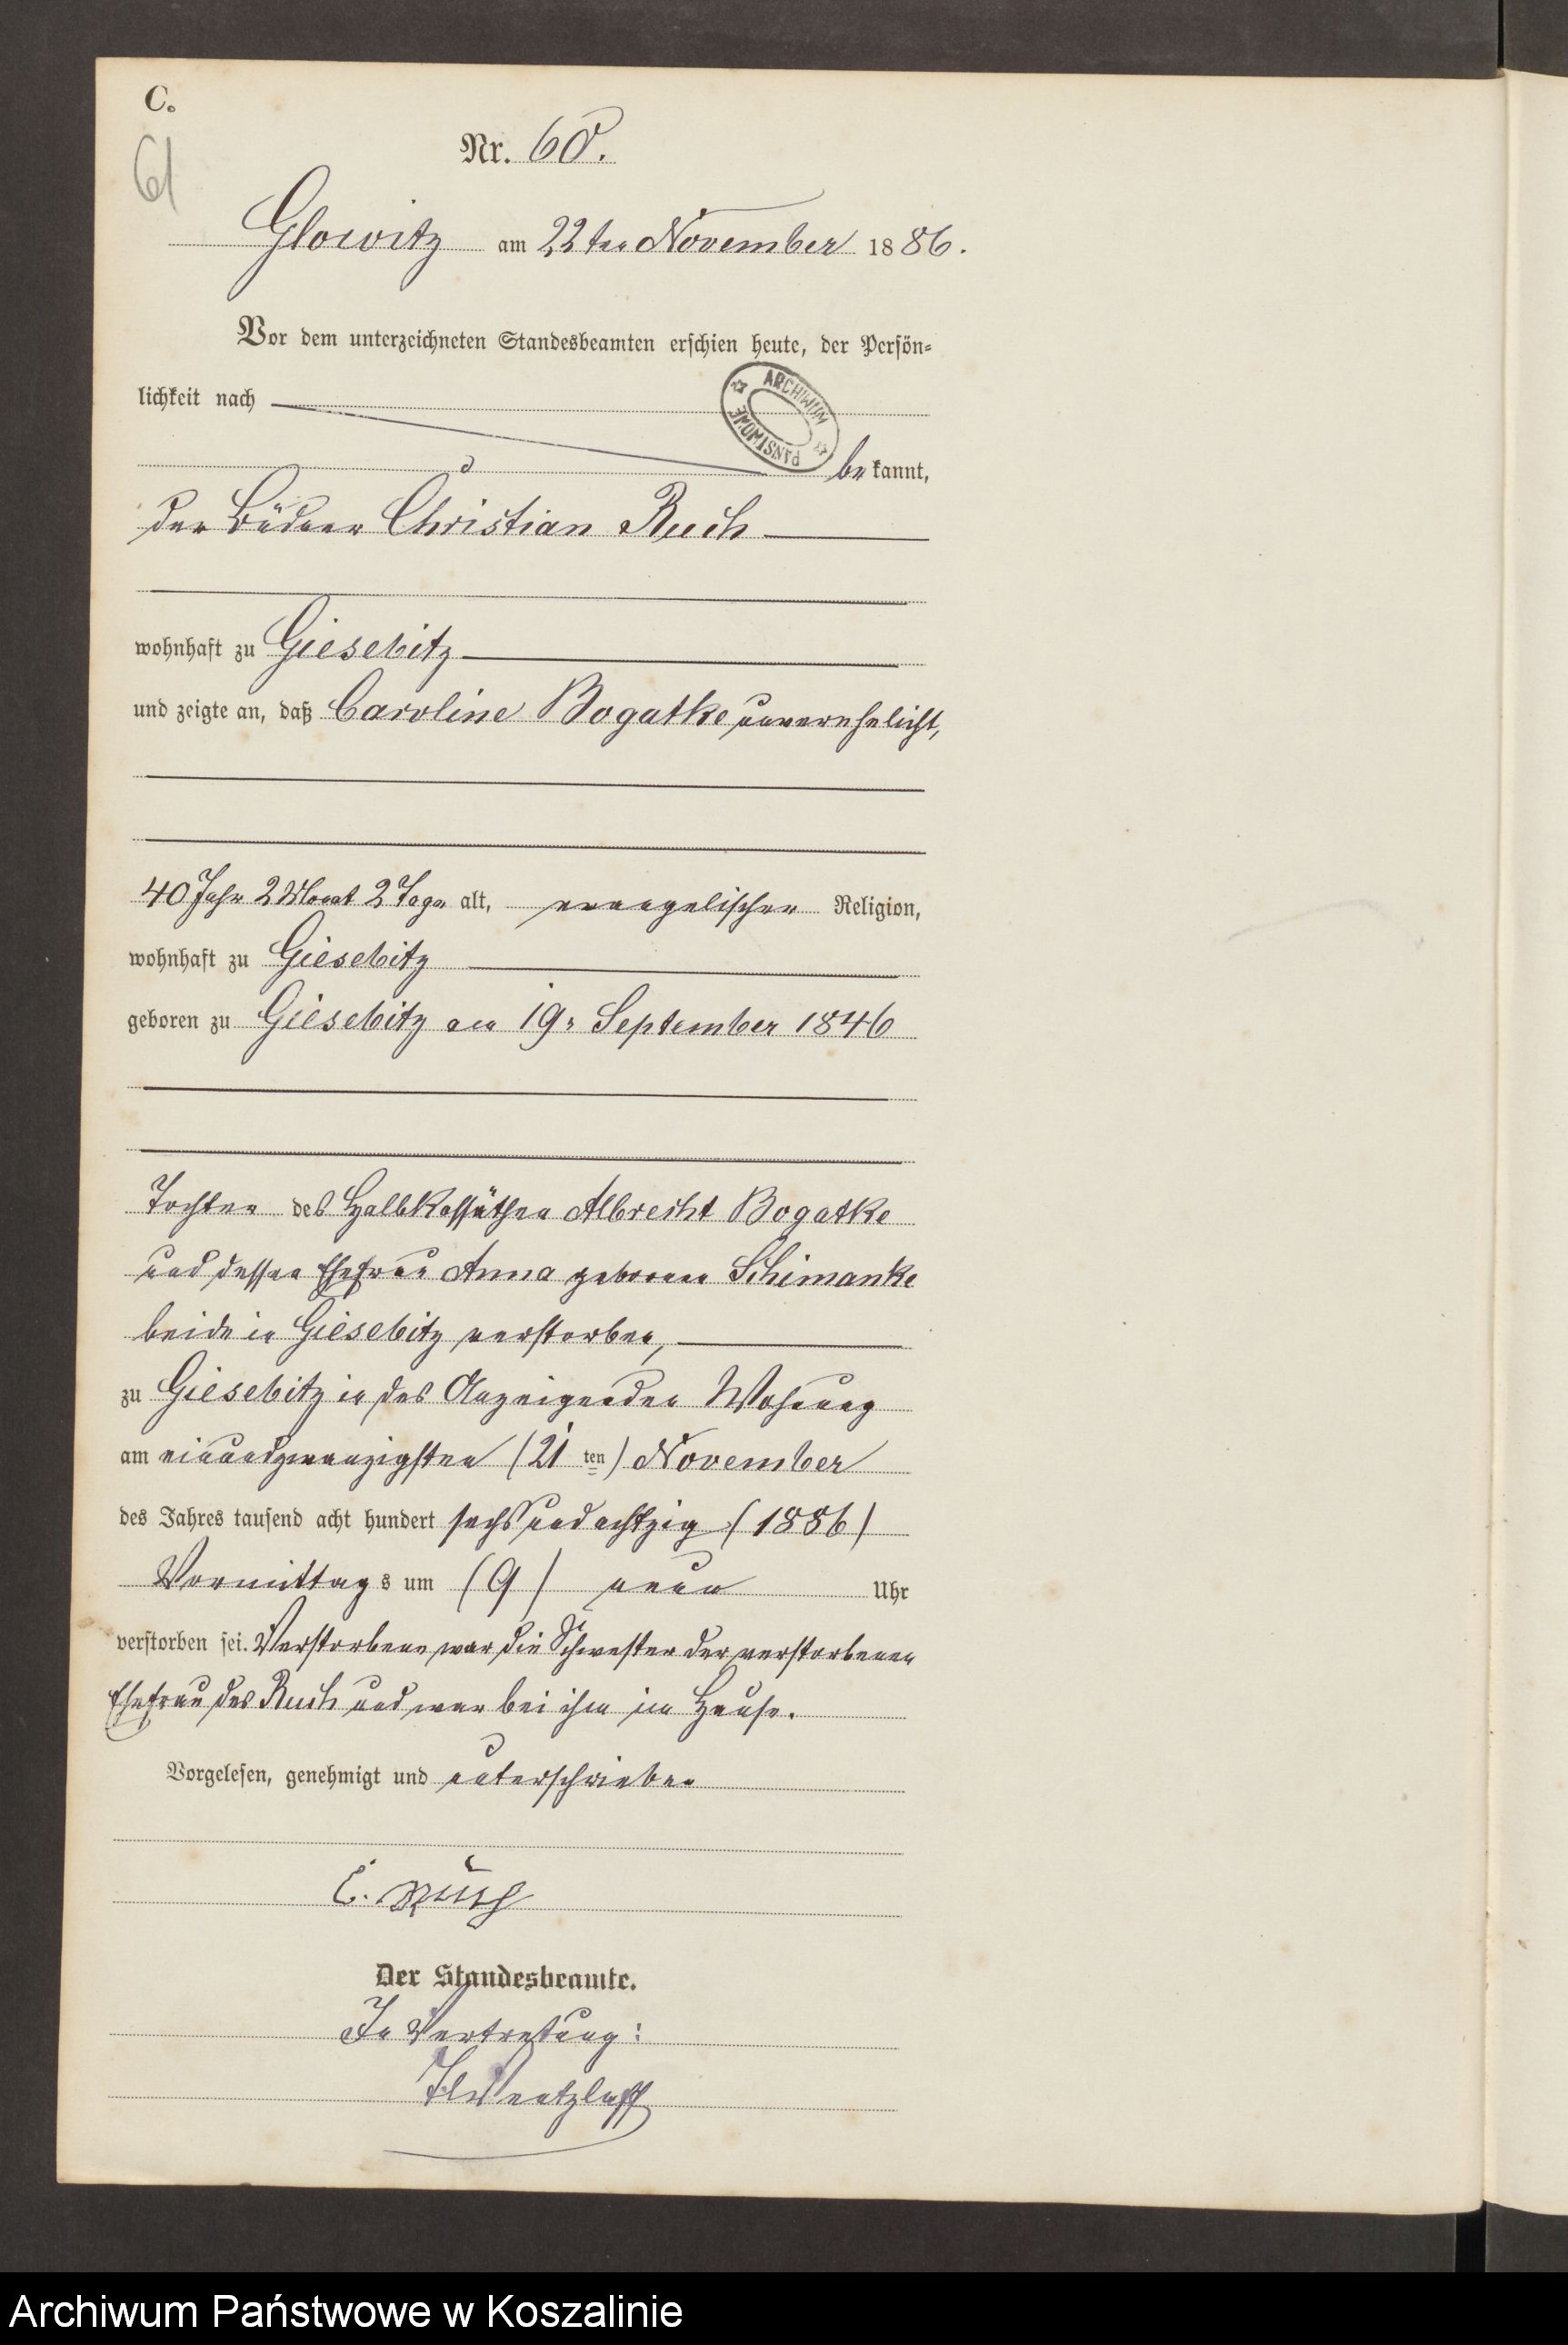 C.
61
Nr. 60.
Glowitz am 22ten November 1886.
Vor dem unterzeichneten Standesbeamten erschien heute, der Persön-
lichkeit nach
ARCHIWUM PAŃSTWOWE
bekannt,
der Büdner Christian Ruch
wohnhaft zu Giesebitz
und zeigte an, daß Caroline Bogatke unverehelicht,
40 Jahr 2 Monat 2 Tage alt, evangelischer Religion,
wohnhaft zu Giesebitz
geboren zu Giesebitz am 19. September 1846
Tochter des Halbkossäthen Albrecht Bogatke
und dessen Ehefrau Anna geborene Schimanke
beide in Giesebitz verstorben,
zu Giesebitz in des Anzeigenden Wohnung
am einundzwanzigsten (21 ten) November
des Jahres tausend acht hundert sechsundachtzig (1886)
Vormittags um (9) neun Uhr
verstorben sei. Verstorbene war die Schwester der verstorbenen
Ehefrau des Ruch und war bei ihm im Hause.
Vorgelesen, genehmigt und unterschrieben
C. Ruch
Der Standesbeamte.
In Vertretung:
Wentzlaff
Archiwum Państwowe w Koszalinie